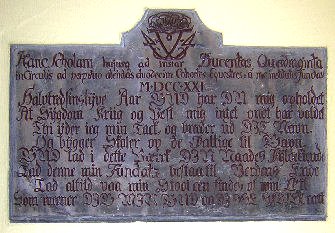 Hanc Scholam hujusq ad instar Ducentas Quadraginta
in Circulis ad perpetuo alendas duodecim Cohortes Equestres a me
M·DCC·XXI
Halvtredsindstyve Aar GUD har DU mig opholdet
At Sygdom Krüg og Pest mig intet ondt har voldet
Thi yder ieg min Tack og breder ud DIT Navn
Og bygger Skoler op de Fattige til Gavn
GUD lad i dette Værck DIN Naades Fylde kiende
Lad denne min Fundatz bestaa til Verdens Ende
Lad altid paa min Stool een findes af min Æt
Som mener DIG MIN GUD og